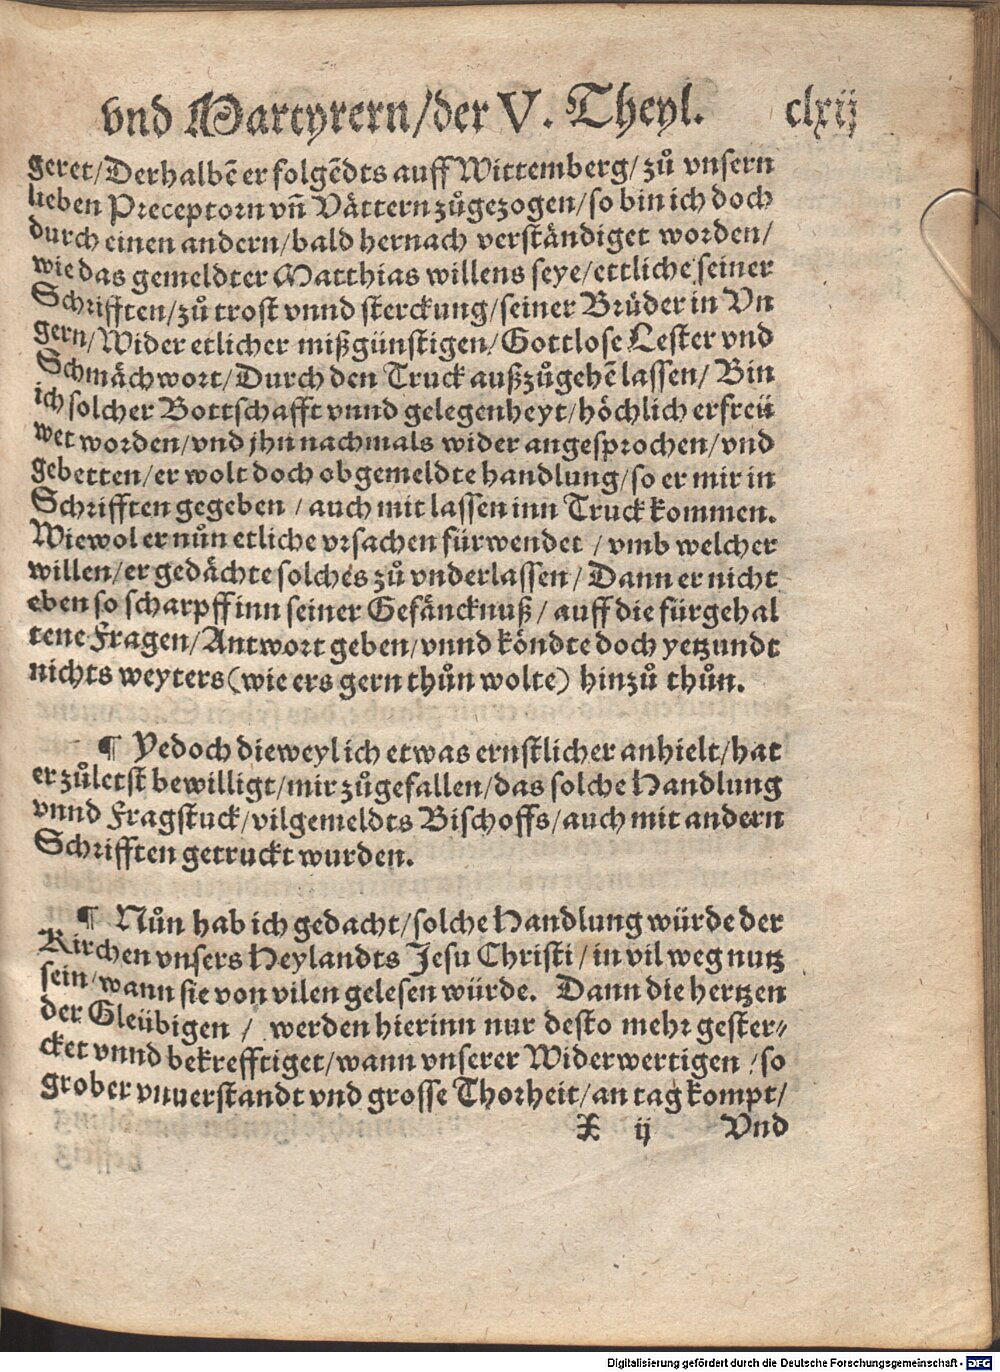 vnd Martyrern/der V. Theyl. clxij
geret/Derhalbẽ er folgẽdts auff Wittemberg/zů vnsern
lieben Preceptorn vñ Vättern zůgezogen/so bin ich doch
durch einen andern/bald hernach verständiget worden/
wie das gemeldter Matthias willens seye/ettliche seiner
Schrifften/zů trost vnnd sterckung/seiner Brüder in Vn
gern/Wider etlicher mißgünstigen/Gottlose Lester vnd
Schmächwort/Durch den Truck außzůgehẽ lassen/Bin
ich solcher Bottschafft vnnd gelegenheyt/höchlich erfreü
wet worden/vnd jhn nachmals wider angesprochen/vnd
gebetten/er wolt doch obgemeldte handlung/so er mir in
Schrifften gegeben/auch mit lassen inn Truck kommen.
Wiewol er nůn etliche vrsachen fürwendet/vmb welcher
willen/er gedächte solches zů vnderlassen/Dann er nicht
eben so scharpff inn seiner Gefäncknuß/auff die fürgehal
tene Fragen/Antwort geben/vnnd köndte doch yetzundt
nichts weyters(wie ers gern thůn wolte) hinzů thůn.
¶ Yedoch dieweyl ich etwas ernstlicher anhielt/hat
er zůletst bewilligt/mir zůgefallen/das solche Handlung
vnnd Fragstuck/vilgemeldts Bischoffs/auch mit andern
Schrifften getruckt wurden.
¶ Nůn hab ich gedacht/solche Handlung würde der
Kirchen vnsers Heylandts Jesu Christi/in vil weg nutz
sein/wann sie von vilen gelesen würde. Dann die hertzen
der Gleübigen/ werden hierinn nur desto mehr gester⸗
cket vnnd bekrefftiget/wann vnserer Widerwertigen/so
grober vnuerstandt vnd grosse Thorheit/an tag kompt/
X ij Vnd
Digitalisierung gefördert durch die Deutsche Forschungsgemeinschaft - DFG